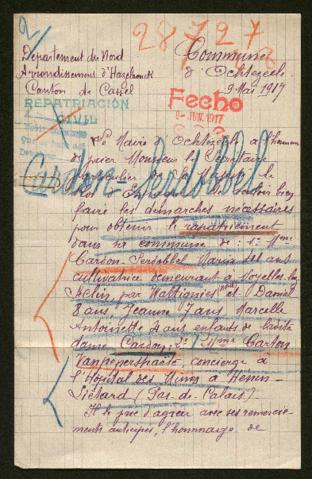 2/
28727
Département du Nord
Arrondissement d'Hazebrouck
Canton de Cassel
Commune
d'Ochtezeele
9 Mai 1917
REPATRIACIÓN
CIVIL
Fecho
9-JUN. 1917
Le Maire d'Ochtezeele a l'honneur
de prier Monsieur le Secrétaire
particulier de Sa Majesté le
Roi de vouloir bien
faire les démarches nécessaires
pour obtenir le rapatriement
dans sa commune de : 1° Mme
Cardon-Serlobbel Maria ans
cultivatrice demeurant à Noyelles lez
Seclin, par Wattignies (Nord) et Daniel
8 ans, Jeanne 7 ans, Marcelle
Antoinette 4 ans enfants de ladite
dame Cardon, 2° Mme Carton
Vanpeperstraete, concierge à
l'Hôpital des Mines à Hénin-
Liétard (Pas-de-Calais).
Il le prie d'agréer avec ses remercie-
ments anticipés, l'hommage de